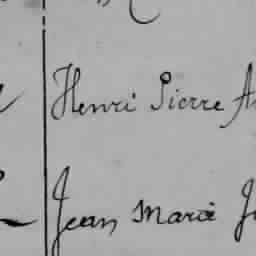 Henri Pierre
Jean Marie